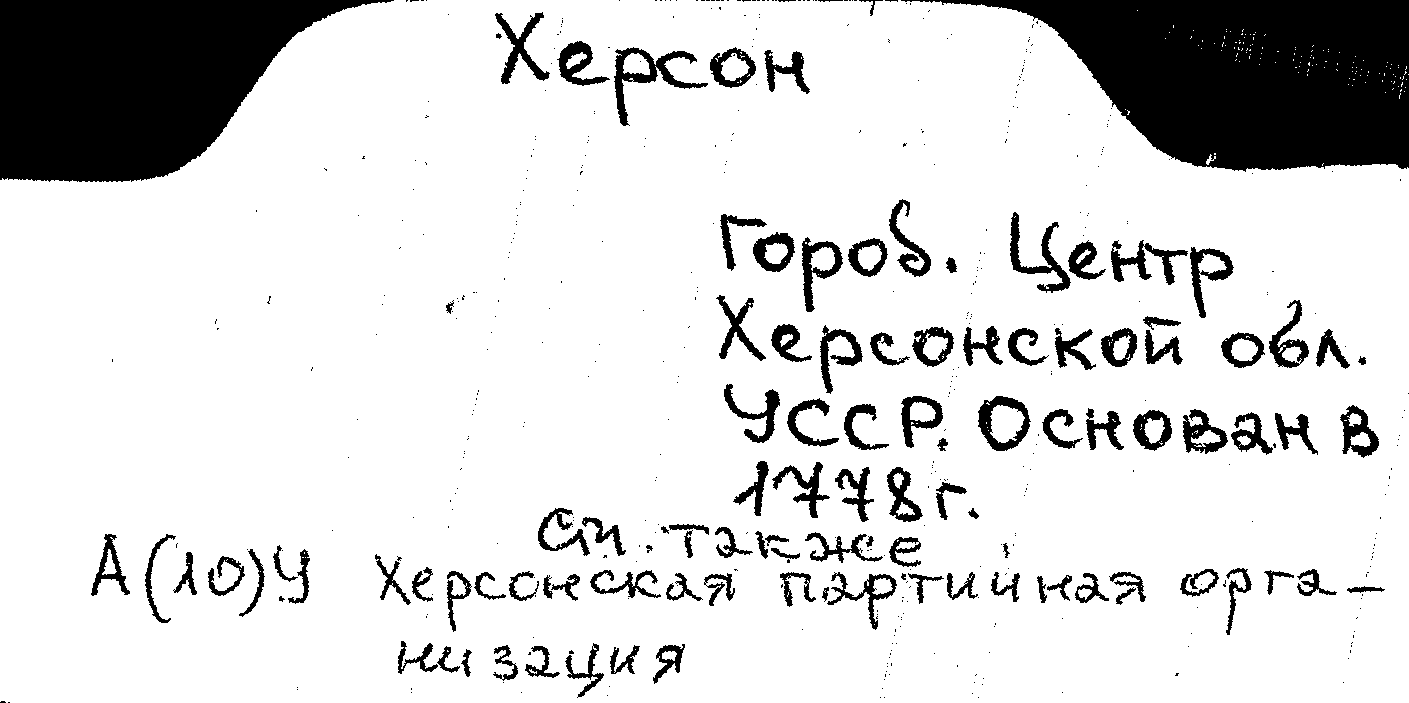 Херсон
Город. Центр
Херсонской обл.
УССР. Основан в
1778 г.
См. также
А(10)У Херсонская партийная орга-
низация